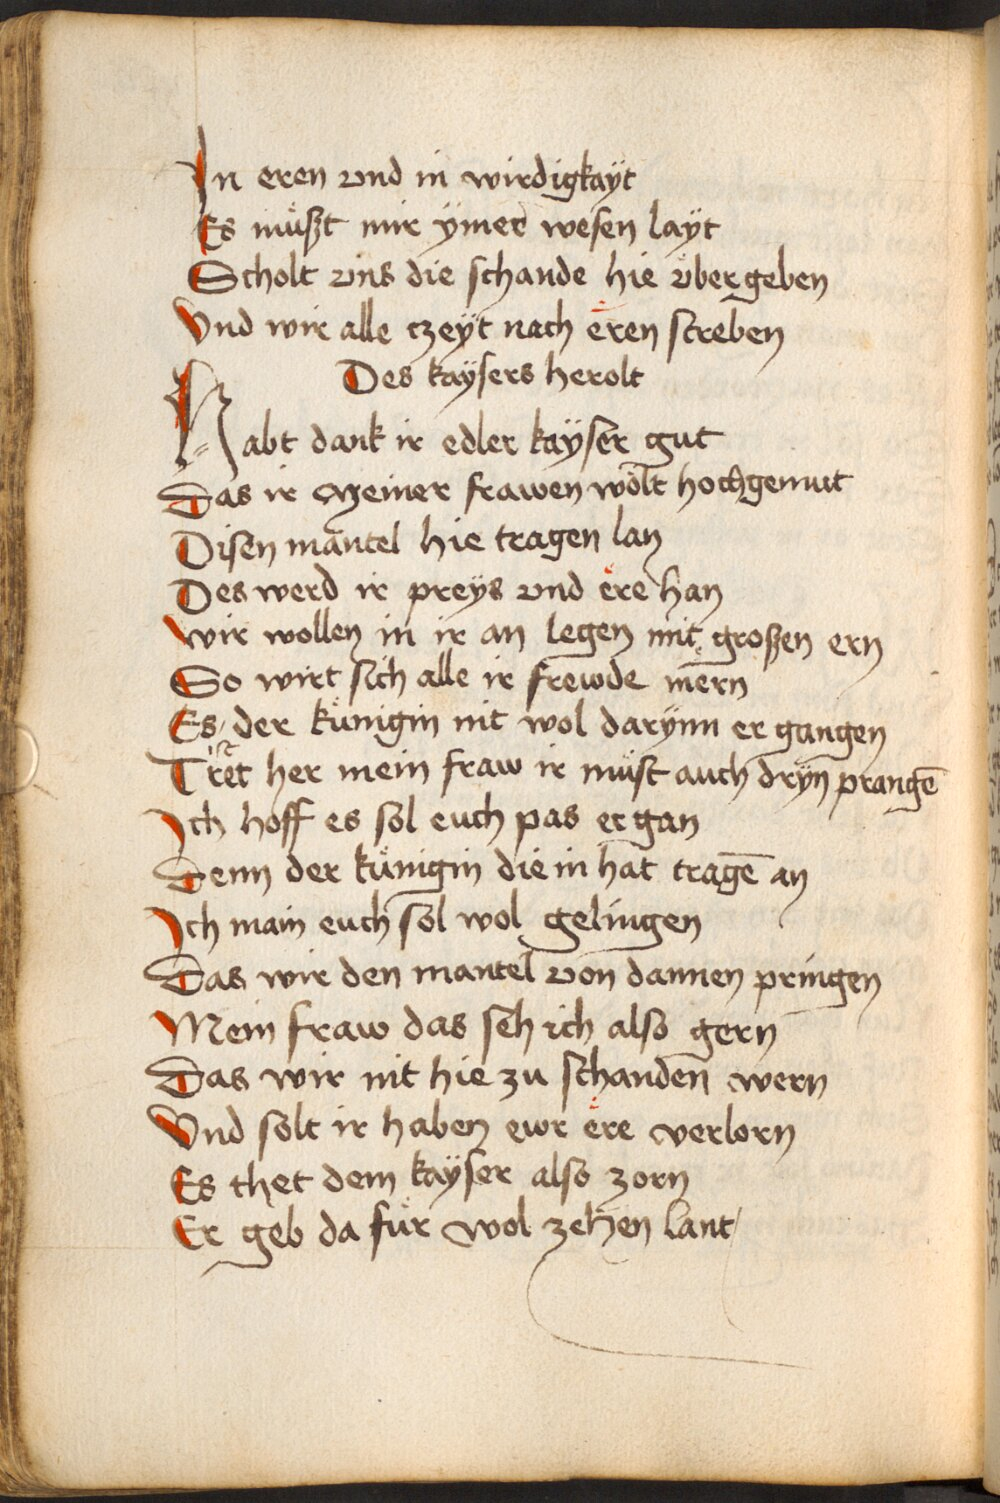 In eren vnd in wirdigkaÿt
Es müßt mir ÿmer wesen laÿt
Scholt vns die schande hie v̈bergeben
Vnd wir alle czeÿt nach eren streben
Des kaÿsers herolt
Habt dank ir edler kaÿser gut
Das ir meiner frawen wölt hochgemut
Disen mantel hie tragen lan
Des werd ir preÿs vnd ere han
Wir wollen in ir an legen mit großen ern
So wirt sich alle ir frewde mern
Es ist der künigin nit wol darÿnn er gangen
Tret her mein fraw ir müst auch drÿn prangē
Ich hoff es sol euch pas ergan
Denn der künigin die in hat tragē an
Ich main euch sol wol gelingen
Das wir den mantel von dannen pringen
Mein fraw das seh ich also gern
Das wir nit hie zu schanden wern
Vnd solt ir haben ewr ere verlorn
Es thet dem kaÿser also zorn
Er geb da für wol zehen lant